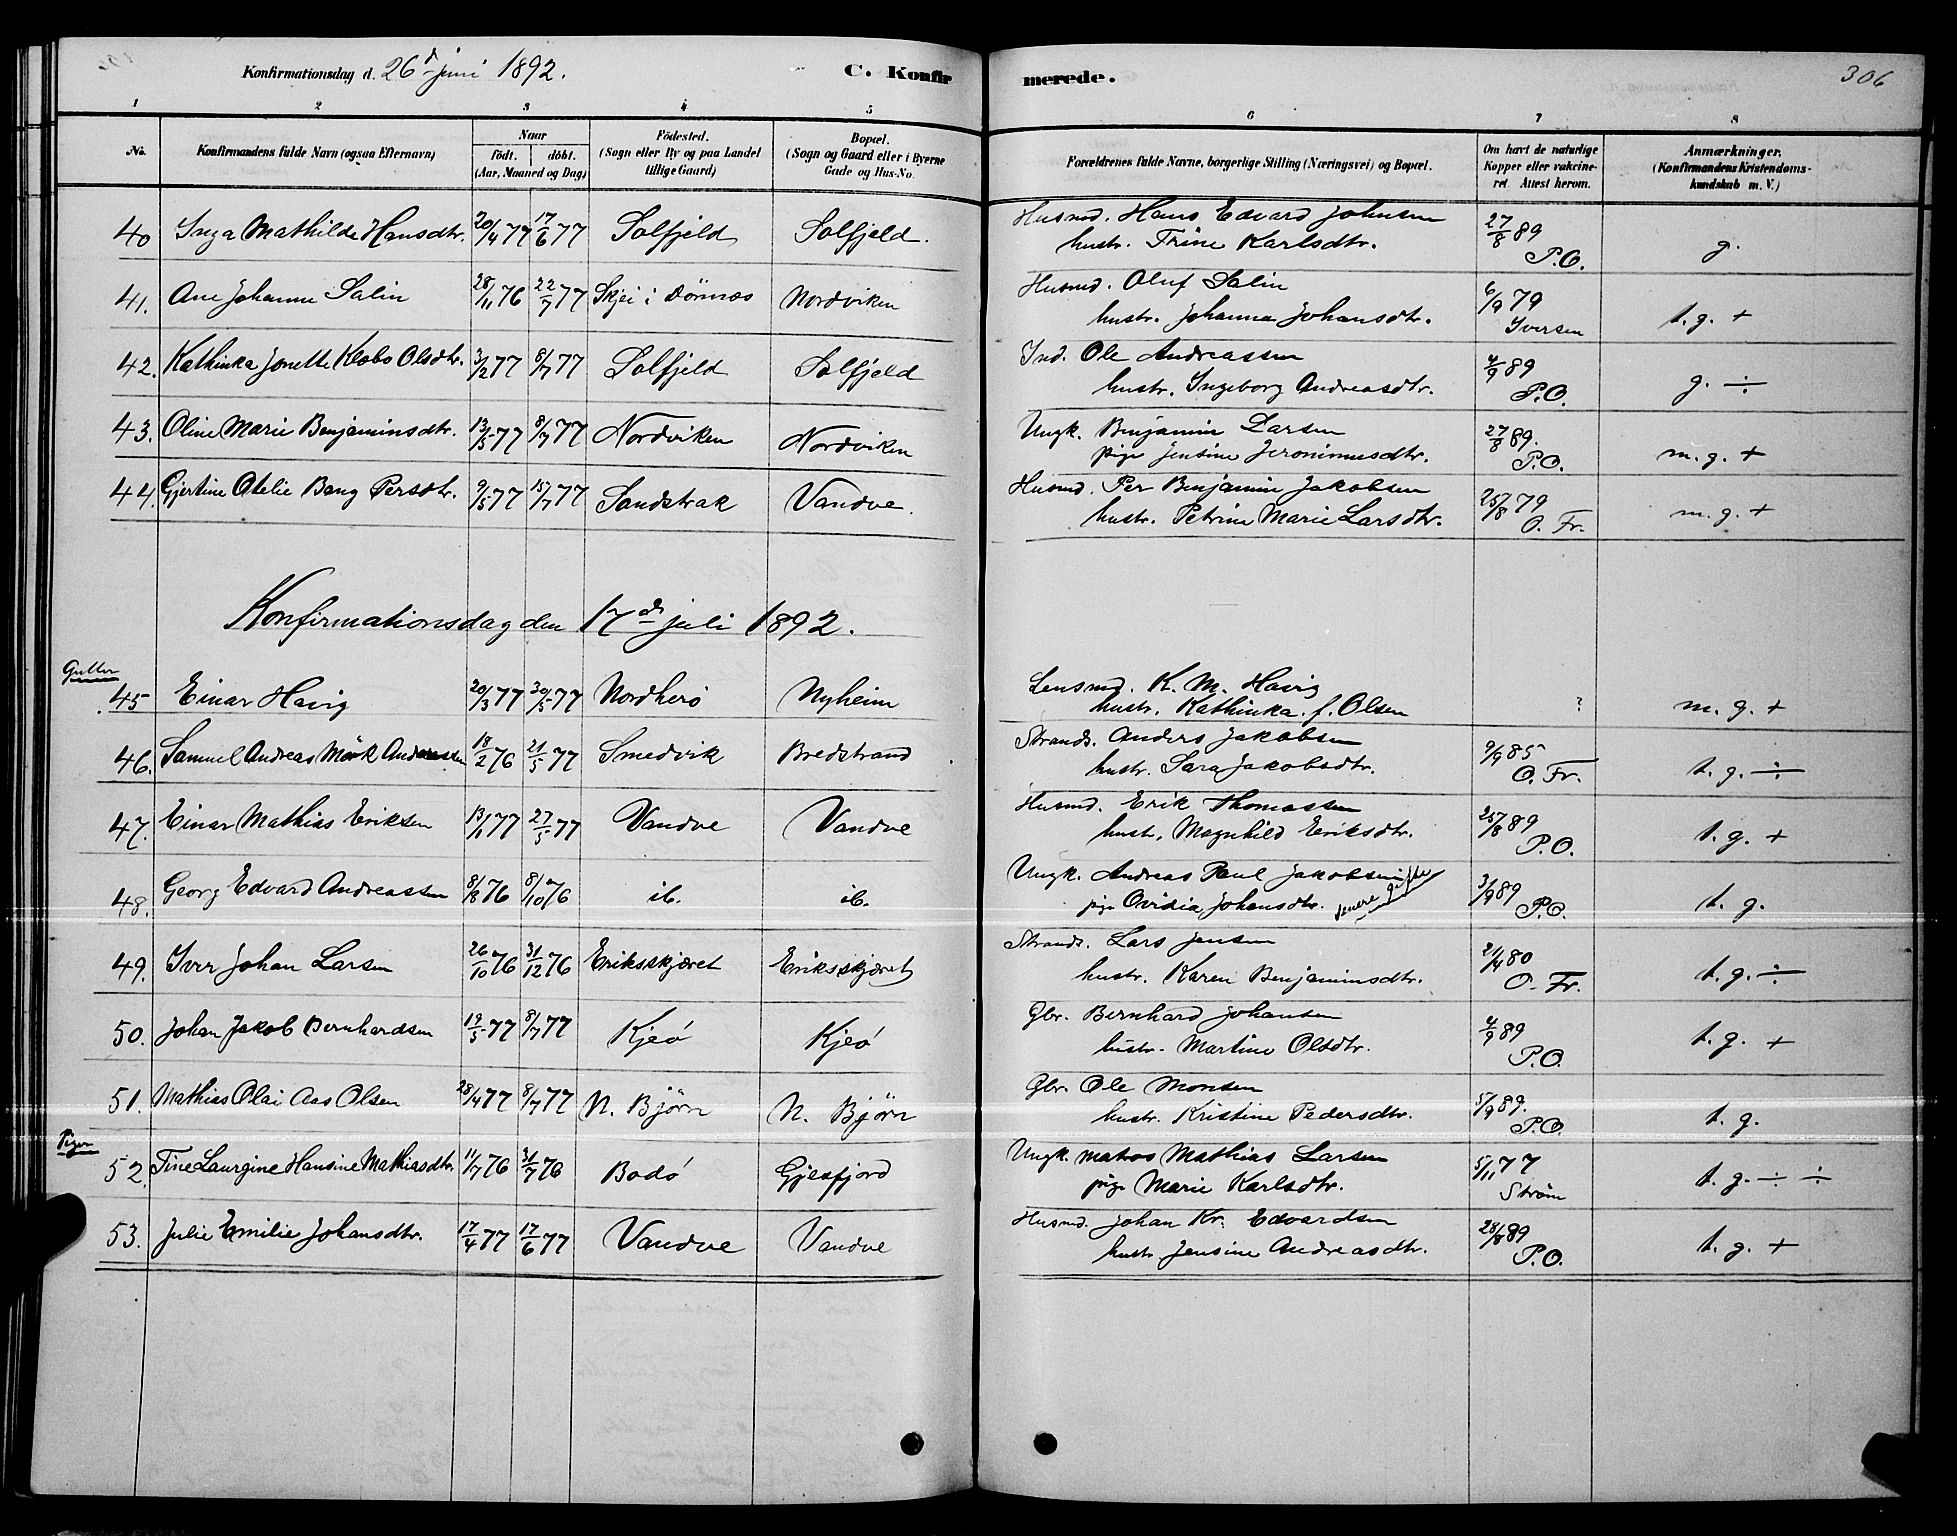 Konfirmationsdag d. 26d juni 1892. C. Konfir merede. 306
1 2 3 4 5 6 7 8
No. Konfirmandens fulde Navn (ogsaa Efternavn) Naar født. døbt. (Aar, Maaned og Dag) Födested. (Sogn eller By og paa Landet tillige Gaard) Bopæl. (Sogn og Gaard eller i Byerne Gade og Hus-No. Forældrenes fulde Navne, borgerlige Stilling (Næringsvei) og Bopæl. Om havt de naturlige Kopper eller vakcineret. Attest herom. Anmærkninger. (Konfirmandens Kristendomskundskab m. V.)
40 Inga Mathilde Hansdtr. 20/4 77 17/6 77 Solfjeld Solfjeld. Husmd. Hans Edvard Johnsen 27/8 89 g.
hustr. Trine Karlsdtr. P.O.
41. Ane Johanne Salin 28/11 76 22/7 77 Skjei i Dönnæs Nordviken Husmd. Oluf Salin 6/9 79 t. g. +
hustr. Johanna Johansdtr. Iversen
42. Kathinka Jonette Klobo Olsdtr. 3/2 77 8/7 77 Solfjeld Solfjeld Ind. Ole Andreassen 4/9 89 g. ÷
hustr. Ingeborg Andreasdtr. P.O.
43. Oline Marie Benjaminsdtr. 13/5 77 8/7 77 Nordviken Nordviken Ungk. Benjamin Larsen 27/8 89. m. g. +
pige Jensine Jeronimusdtr. P.O.
44. Gjertine Otelie Bang Persdtr. 9/5 77 15/7 77 Sandstrak Vandve. Husmd. Per Benjamin Jakobsen 25/8 79 m. g. +
hustr. Petrine Marie Larsdtr. O. Fr.
Konfirmationsdag den 17de juli 1892.
Gutter
45 Einar Havig 20/3 77 30/5 77 Nordherö Nyheim Lensmd. K. M. Havig ? m. g. +
hustr. Kathinka f. Olsen
46. Samuel Andreas Mörk Anderssen 18/2 76 21/5 77 Smedvik Bredstrand Strands. Anders Jakobsen 9/9 85 t. g. ÷
hustr. Sara Jakobsdtr. O. Fr.
47. Einar Mathias Eriksen 13/1 77 27/5 77 Vandve Vandve Husmd. Erik Thomassen 25/8 89 t. g. +
hustr. Magnhild Eriksdtr. P.O.
48. Georg Edvard Andreassen 8/8 76 8/10 76 ib. ib. Ungk. Andreas Paul Jakobsen 3/9 89 t. g.
pige Ovidia Johansdtr. senere gifte P.O.
49. Iver Johan Larsen 26/10 76 31/12 76 Eriksskjæret Eriksskjæret Strands. Lars Jensen 21/4 80 t. g. ÷
hustr. Karen Benjaminsdtr. O. Fr.
50. Johan Jakob Bernhardsen 19/5 77 8/7 77 Kjeö Kjeö Gbr. Bernhard Johansen 4/9 89 t. g. +
hustr. Martine Olsdtr. P.O.
51. Mathias Olai Aas Olsen 28/4 77 8/7 77 N. Bjørn N. Bjørn Gbr. Ole Monsen 5/9 89. t. g.
hustr. Kristine Pedersdtr. P.O.
Piger
52. Tine Laurgine Hansine Mathiasdtr. 11/7 76 31/7 76 Bodö Gjesfjord Ungk. Mathias Larsen 5/11 77 t. g. ÷ ÷
pige Marie Karlsdtr. Ström
53. Julie Emilie Johansdtr. 17/4 77 17/6 77 Vandve Vandve Husmd. Johan Kr. Edvardsen 28/8 89 t. g. +
hustr. Jensine Andreasdtr. P.O.